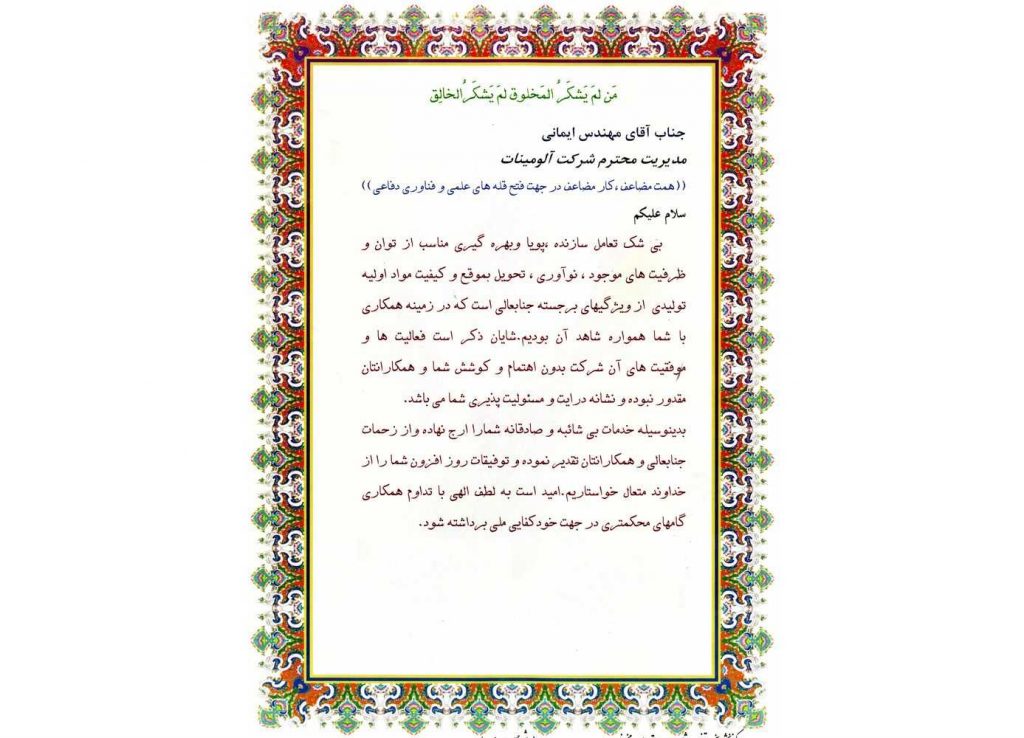 مَن لَمْ يَشكَرُ المَخلوق لَمْ يَشكَرُ الخالِق
جناب آقای مهندس ایمانی
مدیریت محترم شرکت آلومینات
((همت مضاعف ،کار مضاعف در جهت فتح قله های علمی و فناوری دفاعی))
سلام علیکم
بی شک تعامل سازنده ،پویا وبهره گیری مناسب از توان و
ظرفیت های موجود ، نوآوری ، تحویل بموقع و کیفیت مواد اولیه
تولیدی از ویژگیهای برجسته جنابعالی است که در زمینه همکاری
با شما همواره شاهد آن بودیم.شایان ذکر است فعالیت ها و
موفقیت های آن شرکت بدون اهتمام و کوشش شما و همکارانتان
مقدور نبوده و نشانه درایت و مسئولیت پذیری شما می باشد.
بدینوسیله خدمات بی شائبه و صادقانه شمارا ارج نهاده واز زحمات
جنابعالی و همکارانتان تقدیر نموده و توفیقات روز افزون شما را از
خداوند متعال خواستاریم.امید است به لطف الهی با تداوم همکاری
گامهای محکمتری در جهت خودکفایی ملی برداشته شود.